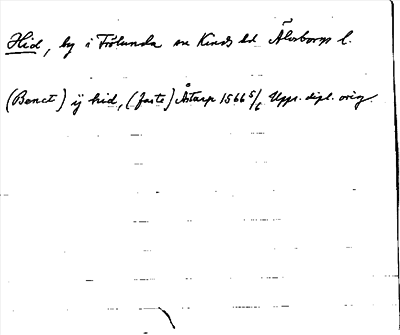 Hid, by i Frölunda sn Kinds hd Älvsborgs l.
(Benct) ÿ hid, (faste) Åstarp 1566 5/6 Upps. dipl. orig.